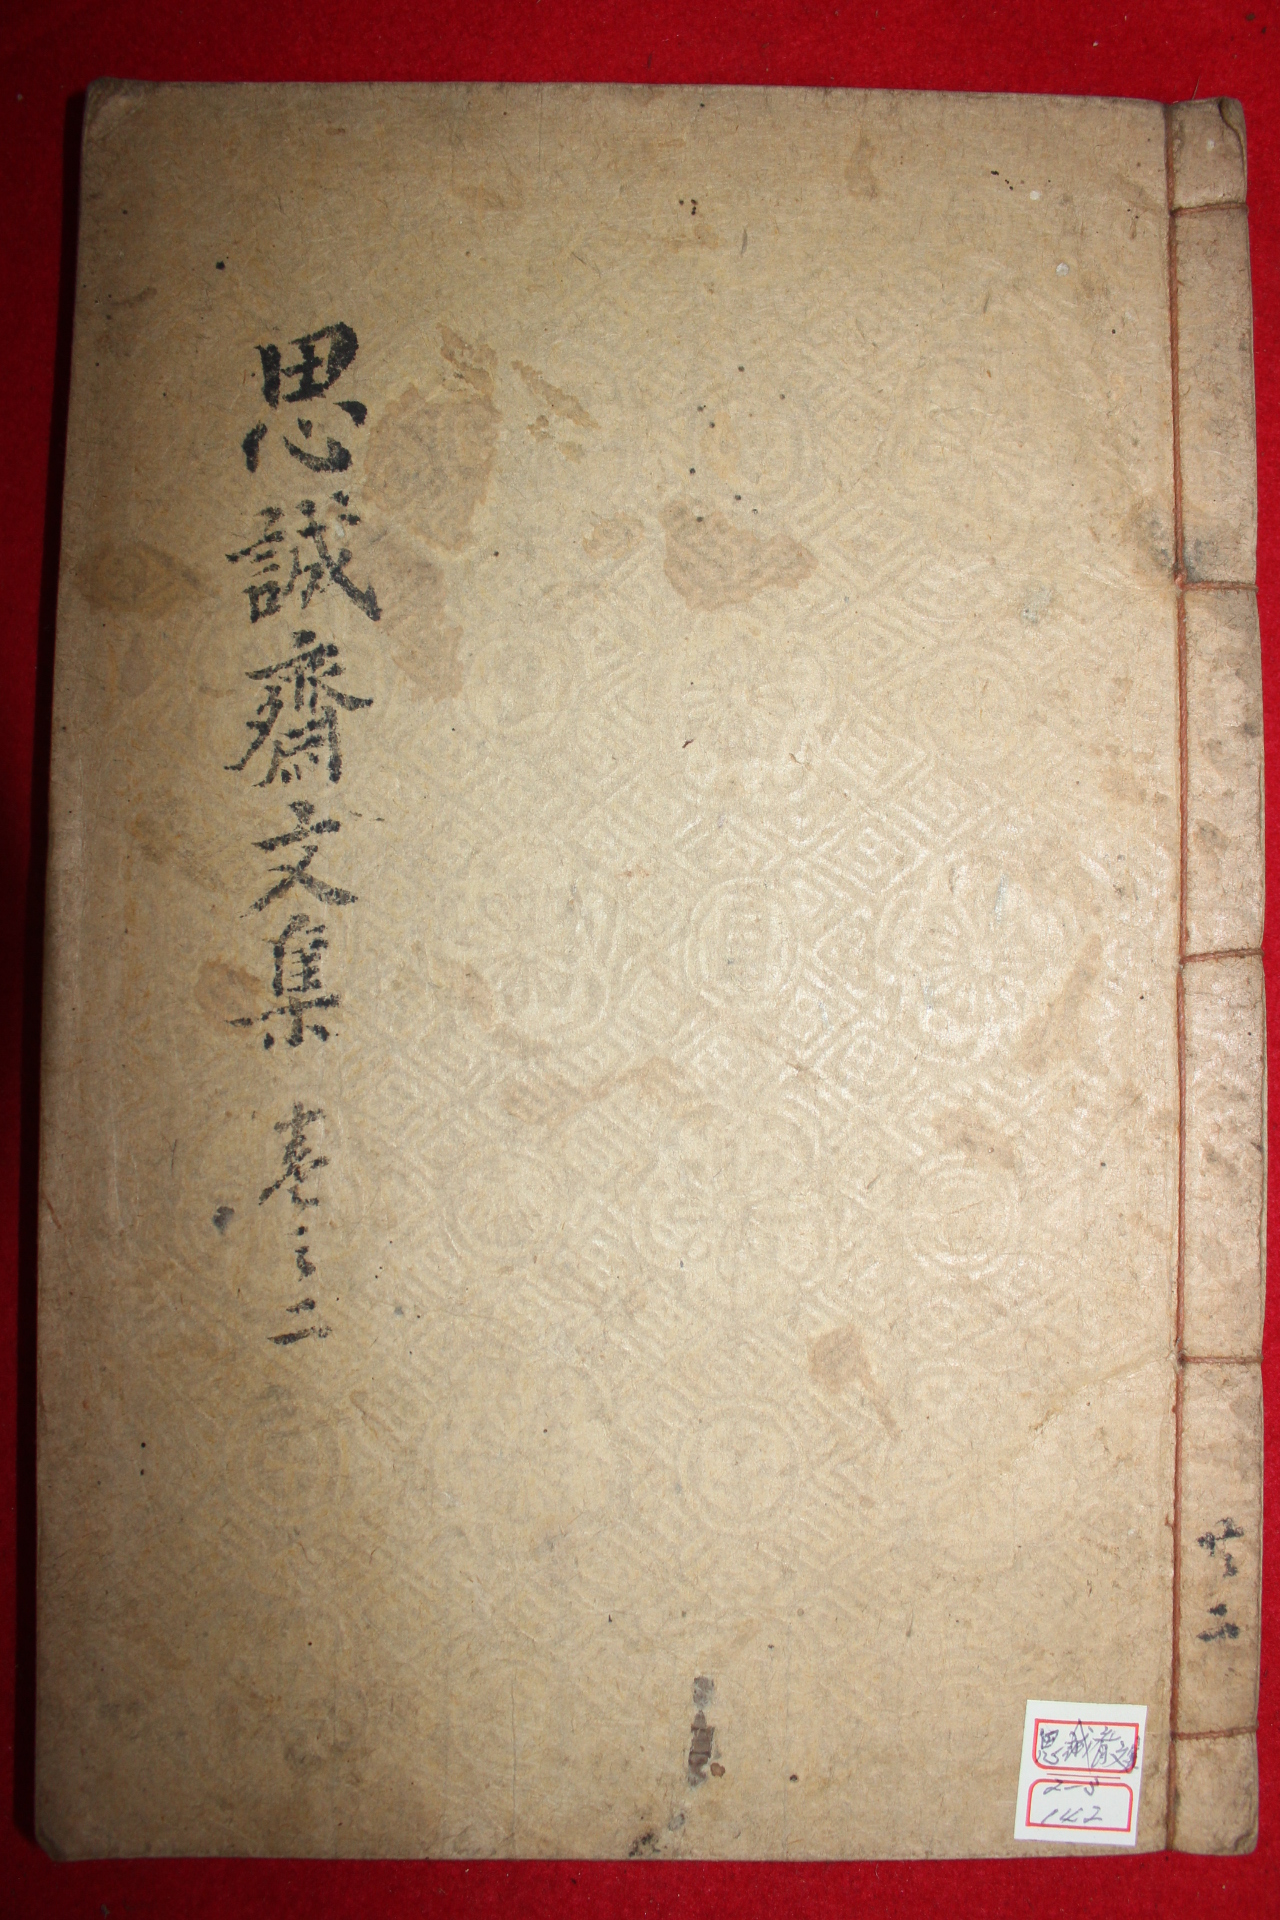 思誠齋文集 卷之二
共二
思誠齋文集
2-3
142